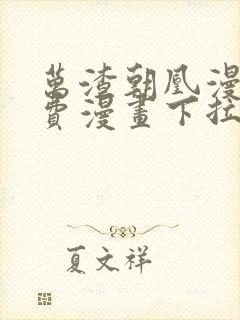 萬渣朝凰漫
費漫畫下拉
夏文祥